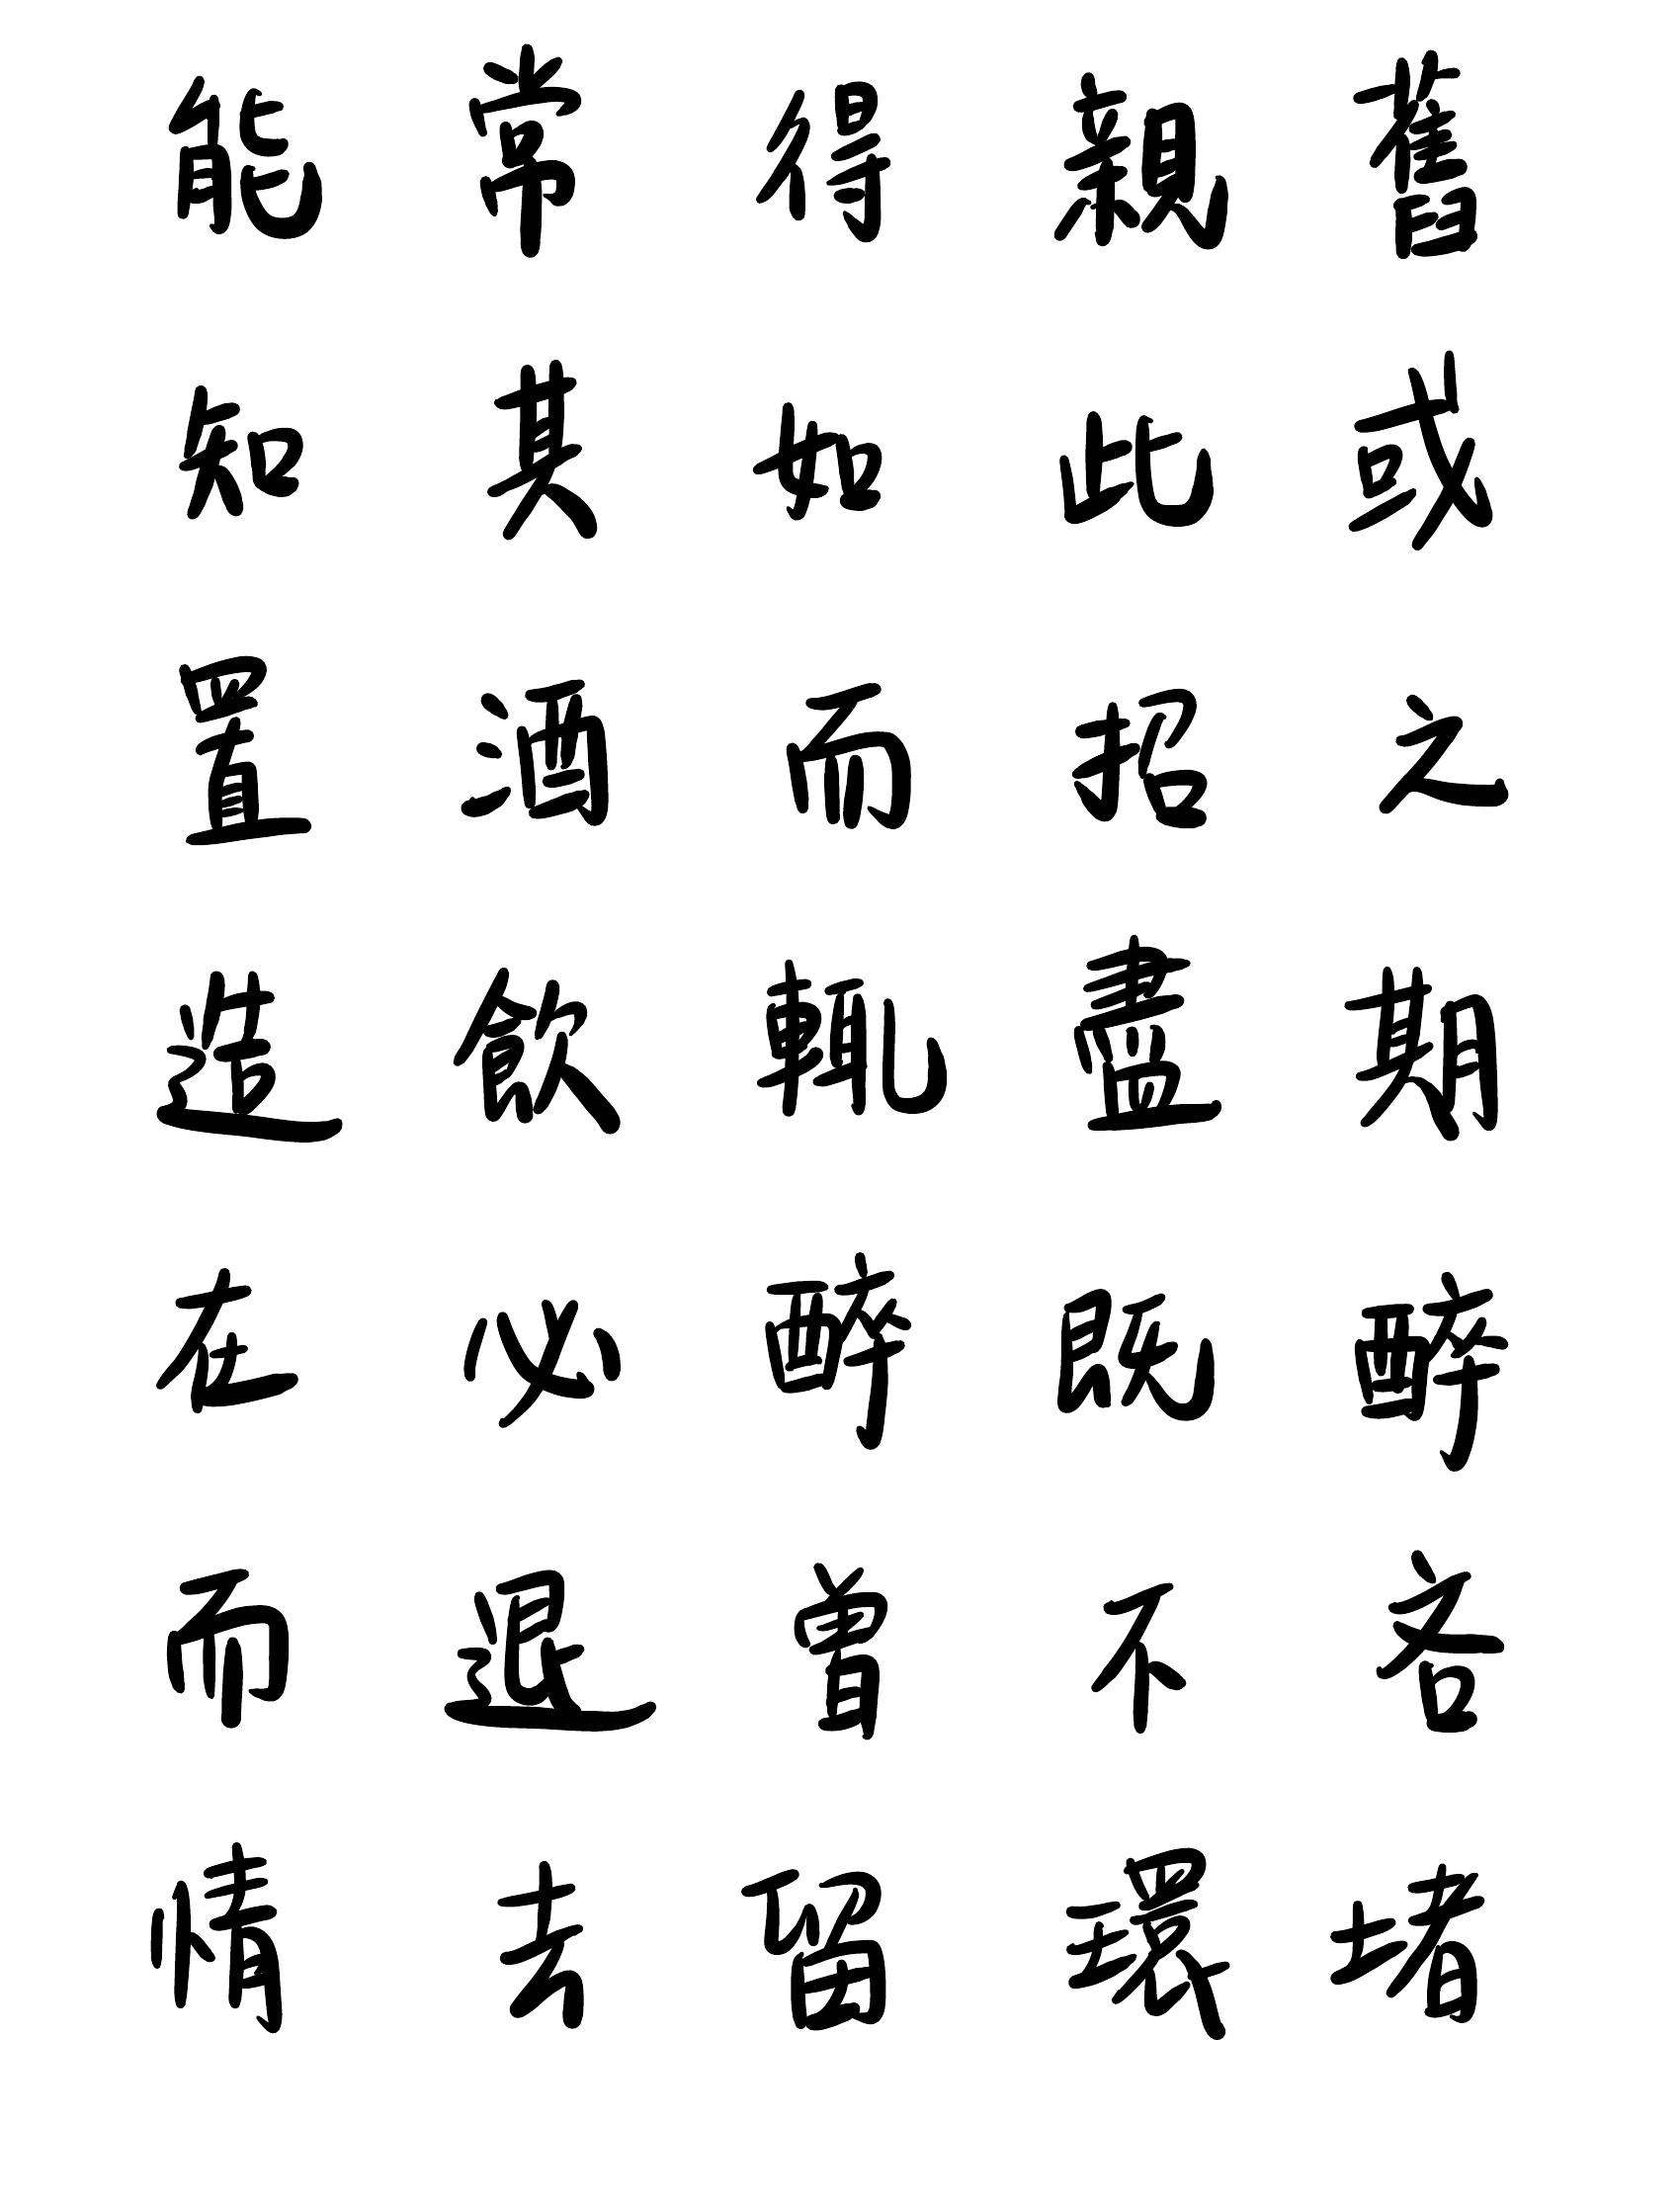 能常得親舊
知其如此或
置酒而招之
造飲輒盡期
在必醉既醉
而退曾不吝
情去留環堵